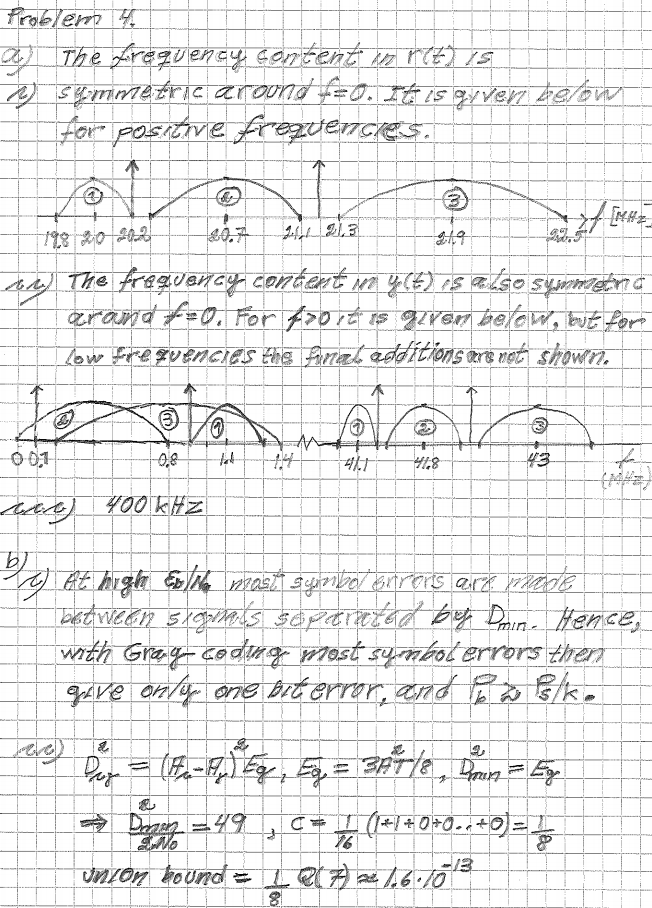 Problem 4.
a) The frequency content in r(t) is
i) symmetric around f=0. It is given below
for positive frequencies.
1 2 3
19.8 20 20.2 20.7 21.1 21.3 21.9 22.5 f [MHz]
ii) The frequency content in y(t) is also symmetric
around f=0. For f>0 it is given below, but for
low frequencies the final additions are not shown.
2 3 1 1 2 3
0 0.1 0.8 1.1 1.4 41.1 41.8 43 f
(MHz)
iii) 400 kHz
b)
i) At high Eb/N0 most symbol errors are made
between signals separated by Dmin. Hence,
with Gray-coding most symbol errors then
give only one bit error, and Pb ≳ Ps/k.
ii) D²ij = (Ai-Aj)² Eg, Eg = 3A²T/8, D²min = Eg
⇒ D²min/2N0 = 49, c = 1/16 (1+1+0+0..+0) = 1/8
union bound = 1/8 Q(7) ≈ 1.6·10⁻¹³